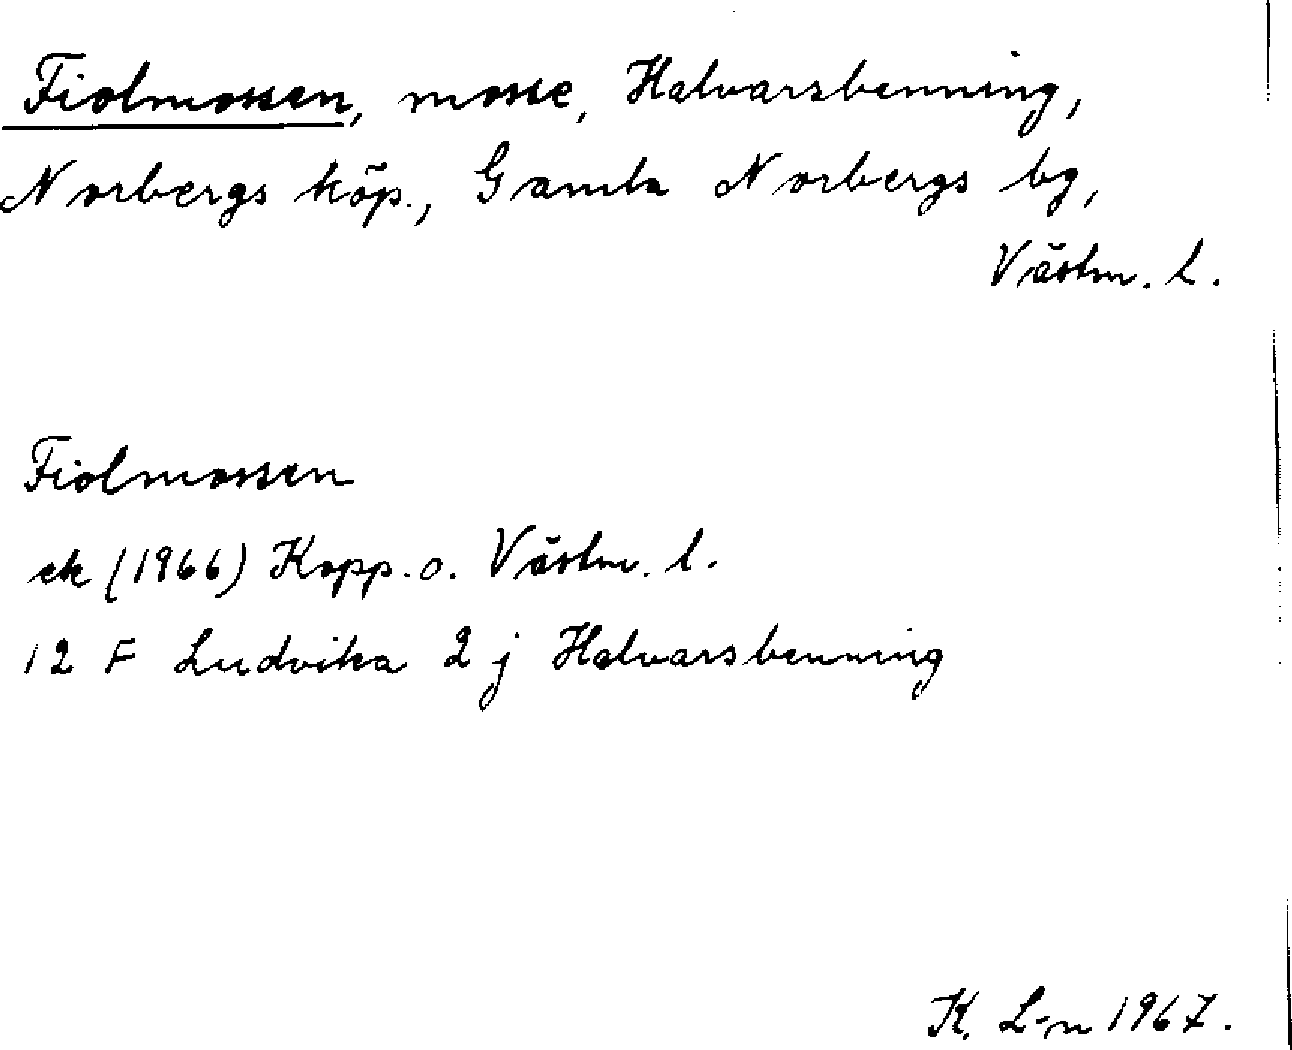 Fiolmossen, mosse, Halvarsbenning,
Norbergs köp., Gamla Norbergs bg,
Västm. l.
Fiolmossen
ek (1966) Kopp. o. Västm. l.
12 F Ludvika 2 j Halvarsbenning
K. L-n 1967.